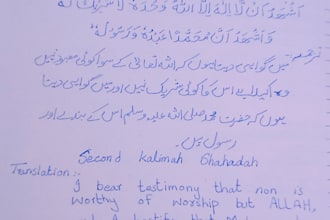 اَشْهَدُ اَنْ لَّا اِلٰهَ اِلَّا اللّٰهُ وَحْدَهٗ لَا شَرِيْكَ لَهٗ
وَاَشْهَدُ اَنَّ مُحَمَّدًا عَبْدُهٗ وَرَسُوْلُهٗ
ترجمہ: میں گواہی دیتا ہوں کہ اللہ تعالیٰ کے سوا کوئی معبود نہیں
وہ اکیلا ہے اس کا کوئی شریک نہیں اور میں گواہی دیتا
ہوں کہ حضرت محمد صلی اللہ علیہ وسلم اس کے بندے اور
رسول ہیں۔
Second kalimah Shahadah
Translation:-
I bear testimony that non is
worthy of worship but ALLAH,